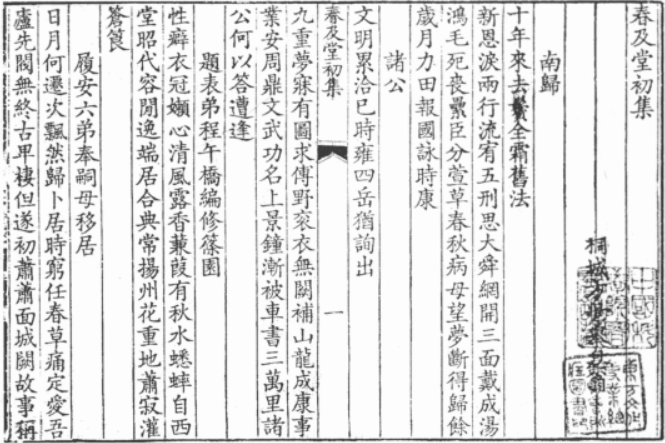 春及堂初集
桐城方
南歸
十年來去鬢全霜舊法
新恩淚兩行流宥五刑思大舜網開三面戴成湯
鴻毛死喪纍臣分萱草春秋病母望夢斷得歸餘
歲月力田報國詠時康
諸公
文明累洽已時雍四岳猶詢出
春及堂初集 一
九重夢寐有圖求傅野衮衣無闕補山龍成康事
業安周鼎文武功名上景鐘漸被車書三萬里諸
公何以答遭逢
題表弟程午橋編修篠園
性癖衣冠嬾心清風露香蒹葭有秋水蟋蟀自西
堂昭代容閒逸端居合典常揚州花重地蕭寂灌
蒼筤
履安六弟奉嗣母移居
日月何遷次飄然歸卜居時窮任春草痛定愛吾
廬先閥無終古卑棲但遂初蕭蕭面城闕故事稱